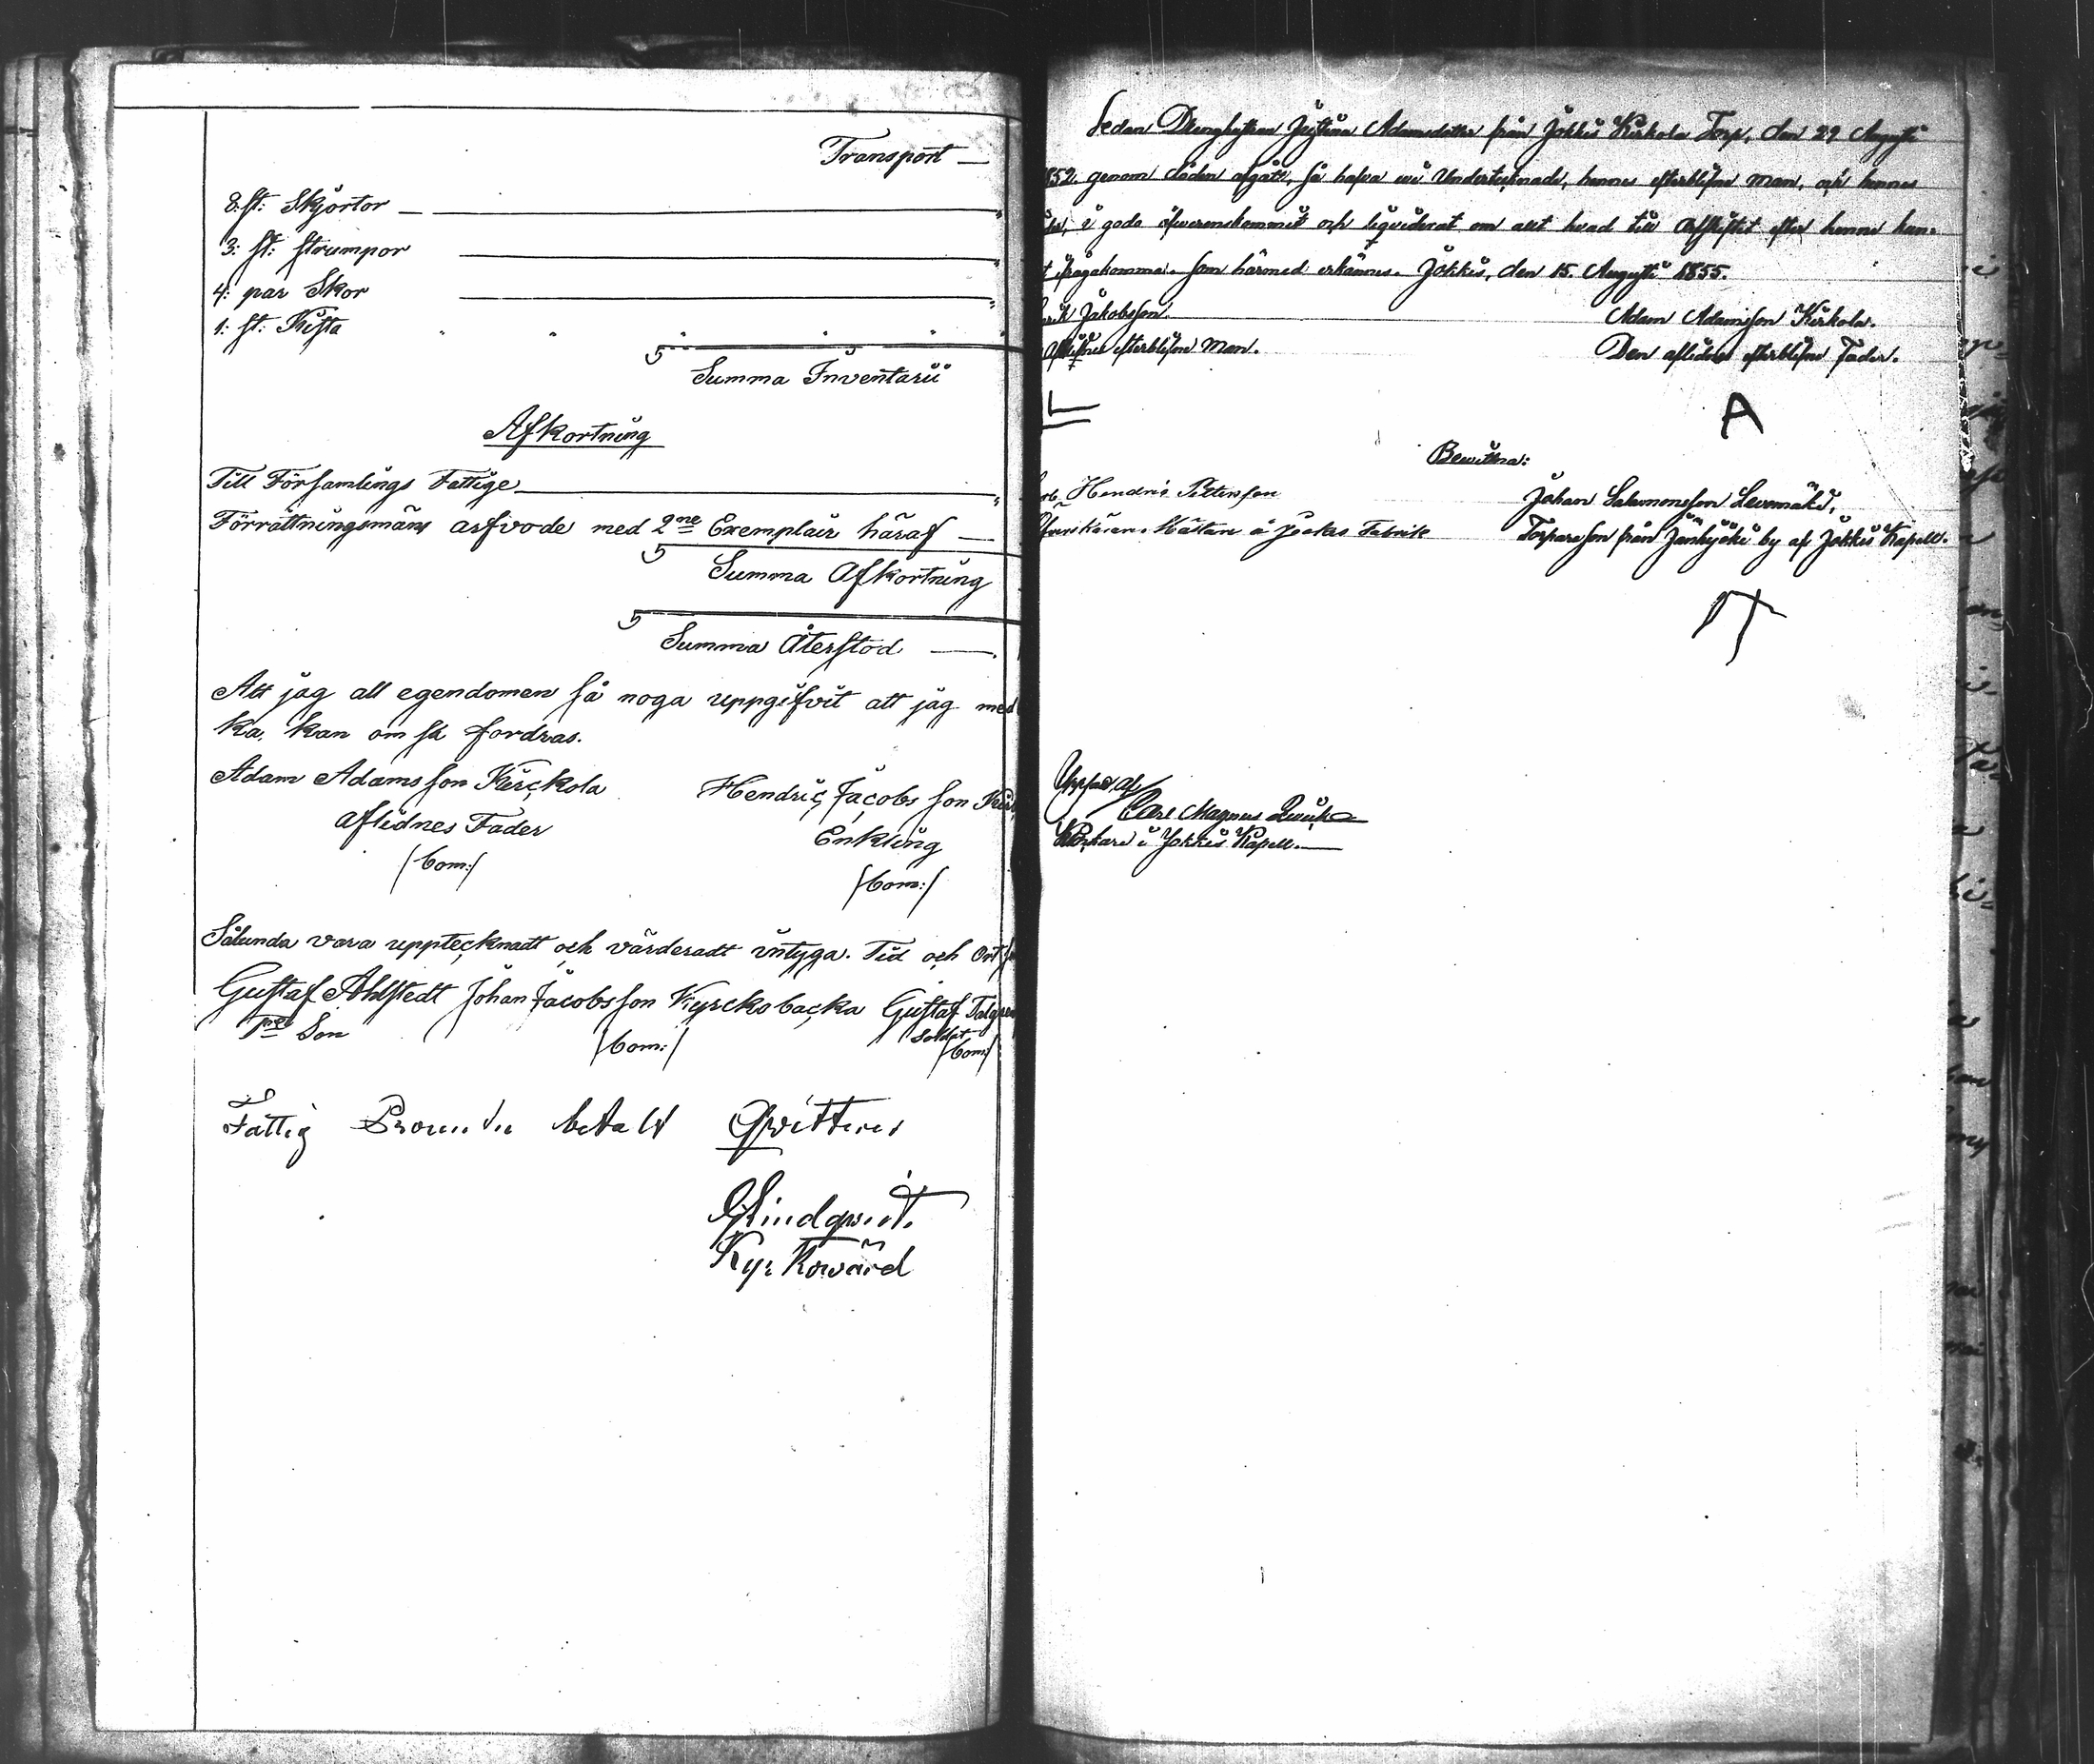 Transport —
8: st: Skjortor —
3: st: strumpor
4: par Skor
1: st: Kista
Summa Inventarii
Afkortning
Till Församlings Fattige
Förrättningsmäns arfvode med 2ne Exemplair häraf —
Summa Afkortning
Summa Återstod —
Att jag all egendomen så noga uppgifvit att jag med
ka, kan om så fordras.
Adam Adamsson Kirckola
Aflidnes Fader
/bom:/
Hendric Jacobsson
Enkling
/bom:/
Sålunda vara uppteçknadt och värderadt intyga. Tid och Ort
Gustaf Ahlstedt Johan Jacobsson Kyrckobacka Gustaf
Son
/bom:/
Soldat
/bom:/
Fattig betalt Qvitteras
Lindqvist
Kyrkovärd
Sedan Justina Adamsdotter från Jokkis Kirkola Torp, den 29 Augusti
1852 genom döden afgått, så hafva wi Undertecknade, hennes efterblefne man, och hennes
i godo öfverenskommit och liqviderat om allt hvad till Arfskiftet efter henne kun-
ifrågakomma. som härmed erkännes. Jokkis, den 15. Augusti 1855.
Jakobsson.
efterblefne Man.
Adam Adamsson Kirkola.
Den aflidnes efterblefne Fader.
A
Bewittna:
Hendric Pettersson
å Jockis Fabrik
Johan Salomonsson
Torpareson från by af Jokkis Kapell.
Uppsatt af
Carl Magnus
i Jokkis Kapell. —